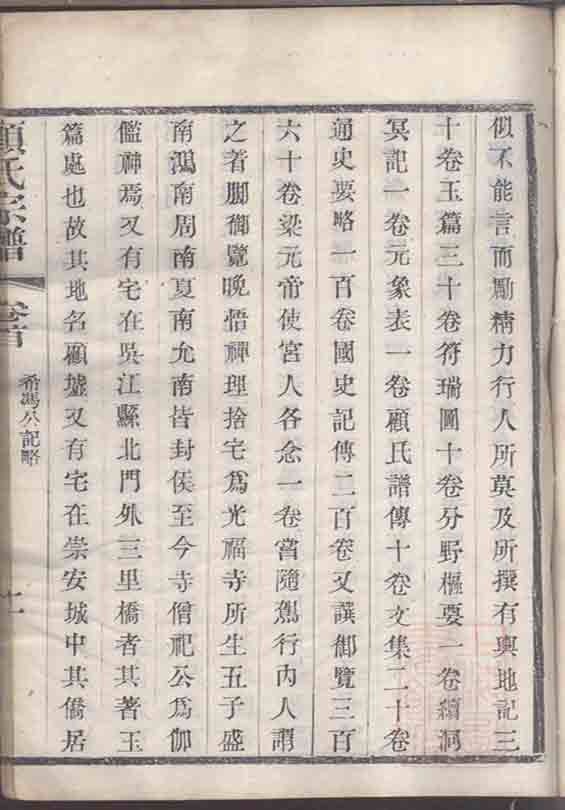 似不能言而勵精力行人所莫及所撰有輿地記三
十卷玉篇三十卷符瑞圖十卷分野樞要一卷續洞
冥記一卷元象表一卷顧氏譜傳十卷文集二十卷
通史要略一百卷國史記傳二百卷又譔御覽三百
六十卷梁元帝使宮人各念一卷嘗隨駕行內人謂
之着脚御覽晚悟禪理捨宅爲光福寺所生五子盛
南鴻南周南夏南允南皆封侯至今寺僧祀公爲伽
儖神焉又有宅在吳江縣北門外三里橋者其著玉
篇處也故其地名顧墟又有宅在崇安城中其僑居
顧氏宗譜
卷首
希馮公記略
十一